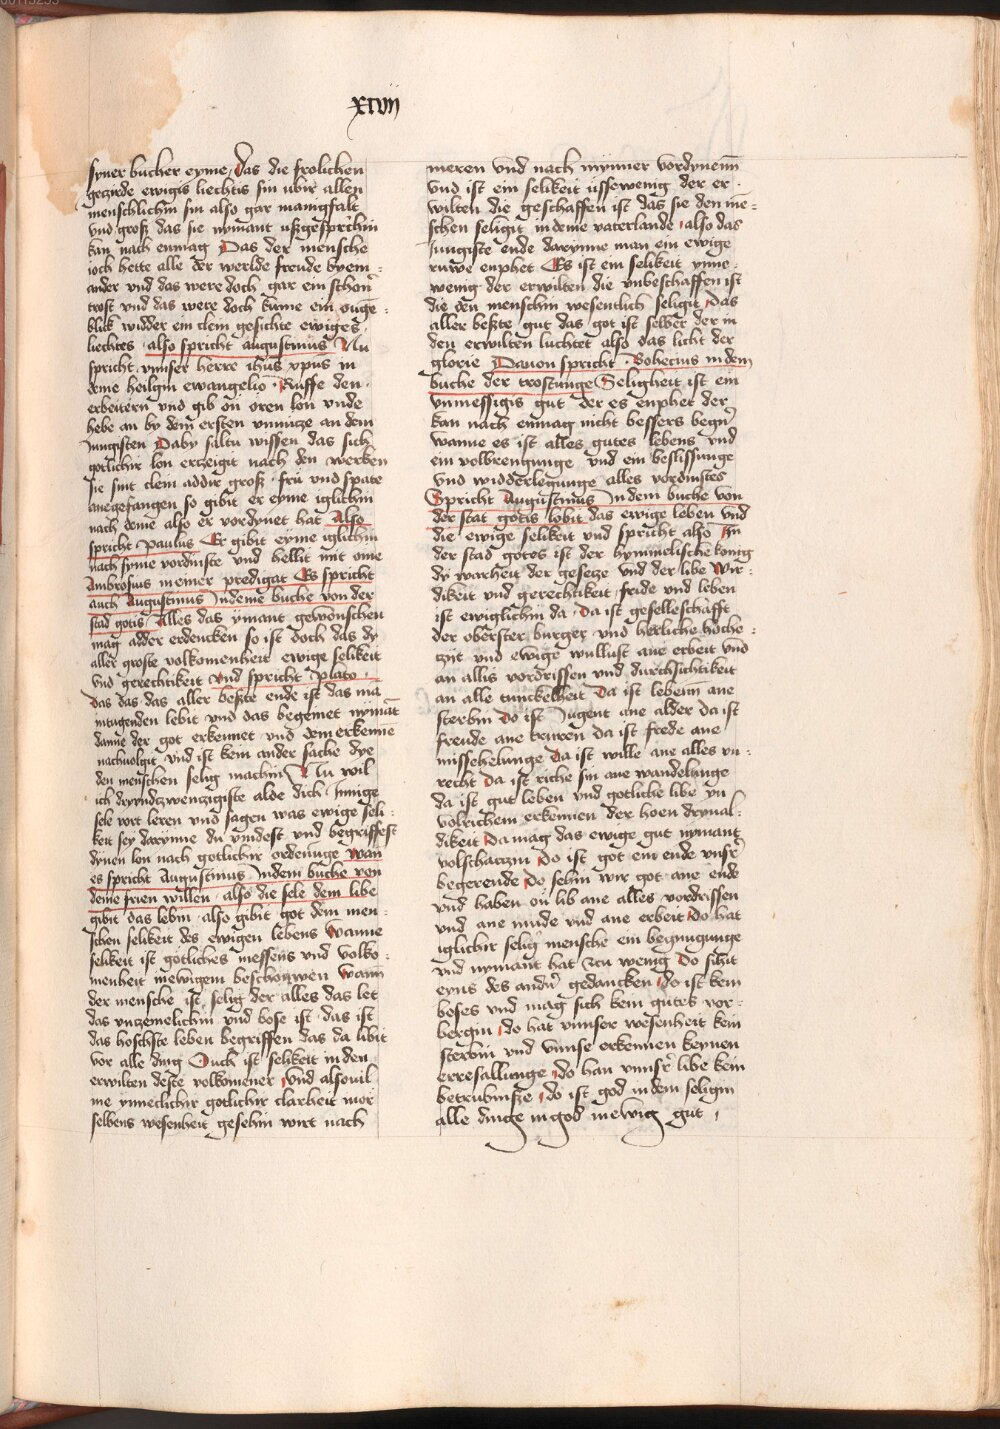 xlvij
syner bucher eyme / Das die frolichen
gezirde ewigis liechtis sin ubir allen
menschlichin sin also gar manigfalt
vnd groß das sie nymant ußgesprechin
kan nach enmag Das der mensche
ioch hette alle der werlde freude byein-
ander vnd das were doch gar ein schon
trost vnd das were doch kume ein ouge-
blik widder ein clein gesichte ewiges
liechtes · also spricht augustinus Nu
spricht vnnser herre ihus xpus in
deme heilgin ewangelio · Ruffe den
erbeitern vnd gib on oren lon vnde
hebe an by dem ersten vnntze an dem
Jungisten Daby saltu wissen das sich
gotlichir lon erzeigit nach den werken
sie sint clein addir groß · fru vnd spate
anegefangen so gibit er eyme iglichin
nach deme also er vordynet hat Also
spricht Paulus Er gibit eyme iglichin
nach syme vordinste vnd hellit mit ome
Ambrosius in einer predigat Es spricht
auch Augustinus In deme buche von der
stad gotis · Alles das ymant gewonschen
mag adder erdencken so ist doch das dy
aller groste volkomenheit ewige selikeit
vnd gerechtikeit vnd spricht Plato ·
Das das das aller beßte ende ist das man
in tugenden lebit vnd das begemet nymant
danne der got erkennet vnd dem erkenne
nachuolgit vnd ist kein ander sache dye
den menschen selig machin Nu wil
ich drynndzwenzigiste alde dich Innige
sele vort leren vnd sagen was ewige seli-
keit sey darynne du vindest vnd begriffest
dynen lon nach gotlichir ordenunge wan
es spricht Augustinus In dem buche von
deme frien willen · also die sele dem libe
gibit das lebin · also gibit got dem men-
schen selikeit des ewigen lebens wanne
selikeit ist gotliches wessens vnd volko-
menheit in ewigem beschouwen wann
der mensche ist selig der alles das let
das vnzemelichin vnd bose ist · das ist
das hoschste leben begriffen das da libit
vor alle ding Ouch ist selikeit in den
erwilten deste volkomener · vnd alsouil
me ynneclichir gotlichir clarheit wor
selbens wesenheit gesehin wirt nach
meren vnd nach mynner vordynenn
vnd ist ein selikeit ussewenig der er-
wilten die geschaffen ist das sie den me-
schen seligit in deme vaterlande · also das
Jungiste ende darynne man ein ewige
ruwe enphet Es ist ein selikeit ynne-
wenig der erwilten die vnbeschaffen ist
die den menschin wesentlich seligit · Das
aller beßte gut das got ist selber der in
den erwilten luchtet also das licht der
glorie Dauon spricht · Bohecius in dem
buche der trostunge Seligheit ist ein
vnmessigis gut der es enphet der
kan nach enmag nicht bessers begern
wanne es ist alles gutes lebens vnd
ein volbrengunge vnd ein beslissunge
vnd widderlegunge alles vordinstes
Spricht Augustinus In dem buche von
der stat gotis lobit das ewige leben vnd
die ewige selikeit vnd spricht also In
der stad gotes ist der hymmelische konig
dy warheit der gesetze vnd der libe wir-
dikeit vnd gerechtikeit · fride vnd leben
ist ewiglichin da · Da ist geselleschafft
der oberster burger vnd herliche hoche-
tzyt vnd ewige wullust ane erbeit vnd
an allis vordrissen vnd durchsichtikeit
an alle tunckelheit Da ist lebenn ane
sterbin Do ist Jugent ane alder da ist
freude ane truren da ist frede ane
missehelunge Da ist wille ane alles vn-
recht Da ist riche sin ane wandelunge
da ist gut leben vnd gotliche libe yn
volrichem erkennen der hoen drynal-
dikeit Da mag das ewige gut nymant
volschatzin Do ist got ein ende vnser
begerende Do sehin wir got ane ende
vnd haben on lib ane alles vordrissen
vnd ane mude vnd ane erbeit Do hat
iglichir selig mensche ein begnugunge
vnd nymant hat zcu wenig Do sihit
eyns des ander gedancken · do ist kein
boses vnd mag sich kein gutes vor-
bergin · do hat vnnser wesenheit kein
sterbin vnd vnnse erkennen keynen
erresallunge · do han vnnser libe kein
betrubnisze · do ist god in dem seligin
alle dinge in god in ewig gut ·